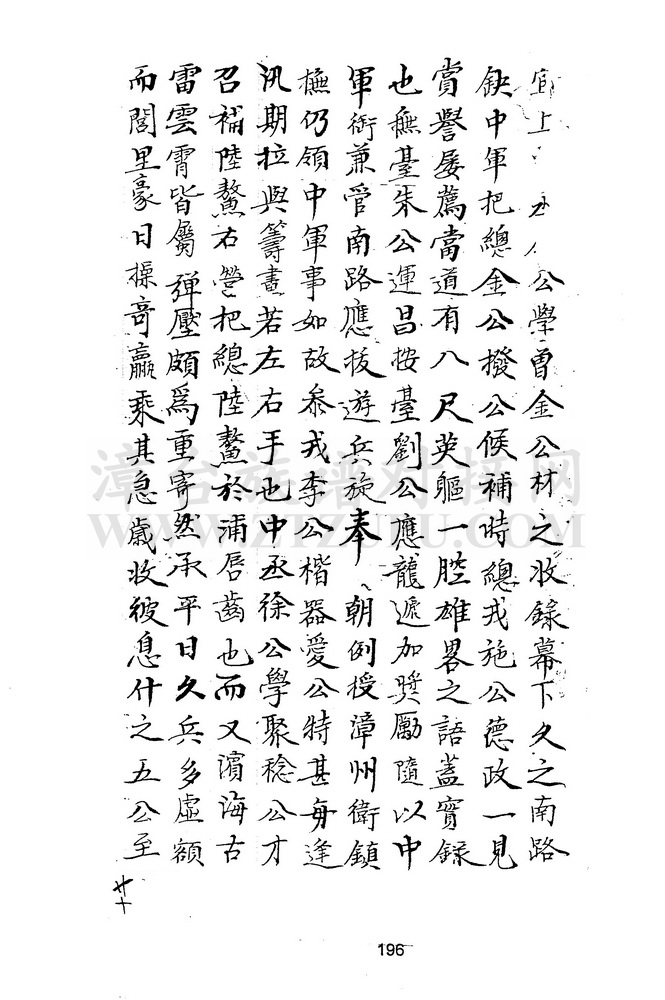 宜上公學曾金公材之收錄幕下久之南路
缺中軍把總金公撥公候補時總戎施公德政一見
賞譽屢薦當道有八尺英軀一腔雄畧之語蓋實錄
也撫臺朱公運昌按臺劉公應龍遞加獎勵隨以中
軍銜兼管南路應援遊兵旋奉朝例授漳州衛鎮
撫仍領中軍事如故叅戎李公楷器愛公特甚每逢
汛期拉與籌畫若左右手也中丞徐公學聚稔公才
召補陸鰲右營把總陸鰲於浦唇齒也而又濱海古
雷雲霄皆屬彈壓頗爲重寄然承平日久兵多虛額
而閭里豪日操奇贏乘其急歲收彼息什之五公至
廿十
196
漳台族譜对接网
WWW.ZTZUPU.COM